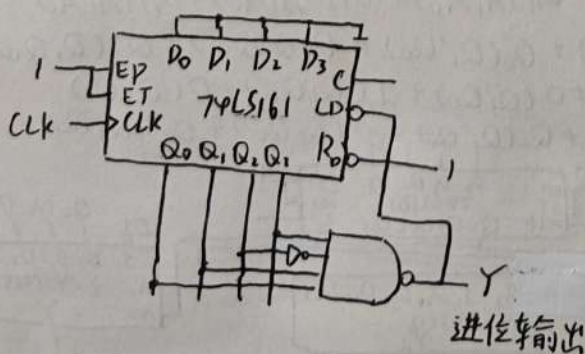 D₀ D₁ D₂ D₃
1 EP C
ET 74LS161 LD
CLK CLK
Q₀ Q₁ Q₂ Q₃ R₀ 1
Y
进位输出